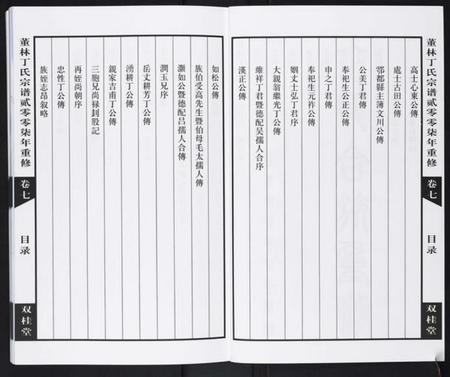 董林丁氏宗谱贰零零柒年重修
卷七
目录
双桂堂
高士心東公傳
處士古田公傳
鄂都縣主簿文川公傳
公美丁君傳
奉祀生公正公傳
申之丁君傳
奉祀生元祚公傳
姻丈士弘丁君序
大親翁繼光丁公傳
維祥丁君暨德配吴孺人合序
漢正公傳
如松公傳
族伯受高先生暨伯母毛太孺人傳
灝如公暨德配吕孺人合傳
潤玉兄序
岳丈耕芳丁公傳
湧耕丁公傳
親家吉甫丁公傳
三胞兄尚禄刲股記
再姪尚朝序
忠性丁公傳
族姪志昂叙略
董林丁氏宗谱贰零零柒年重修
卷七
目录
双桂堂